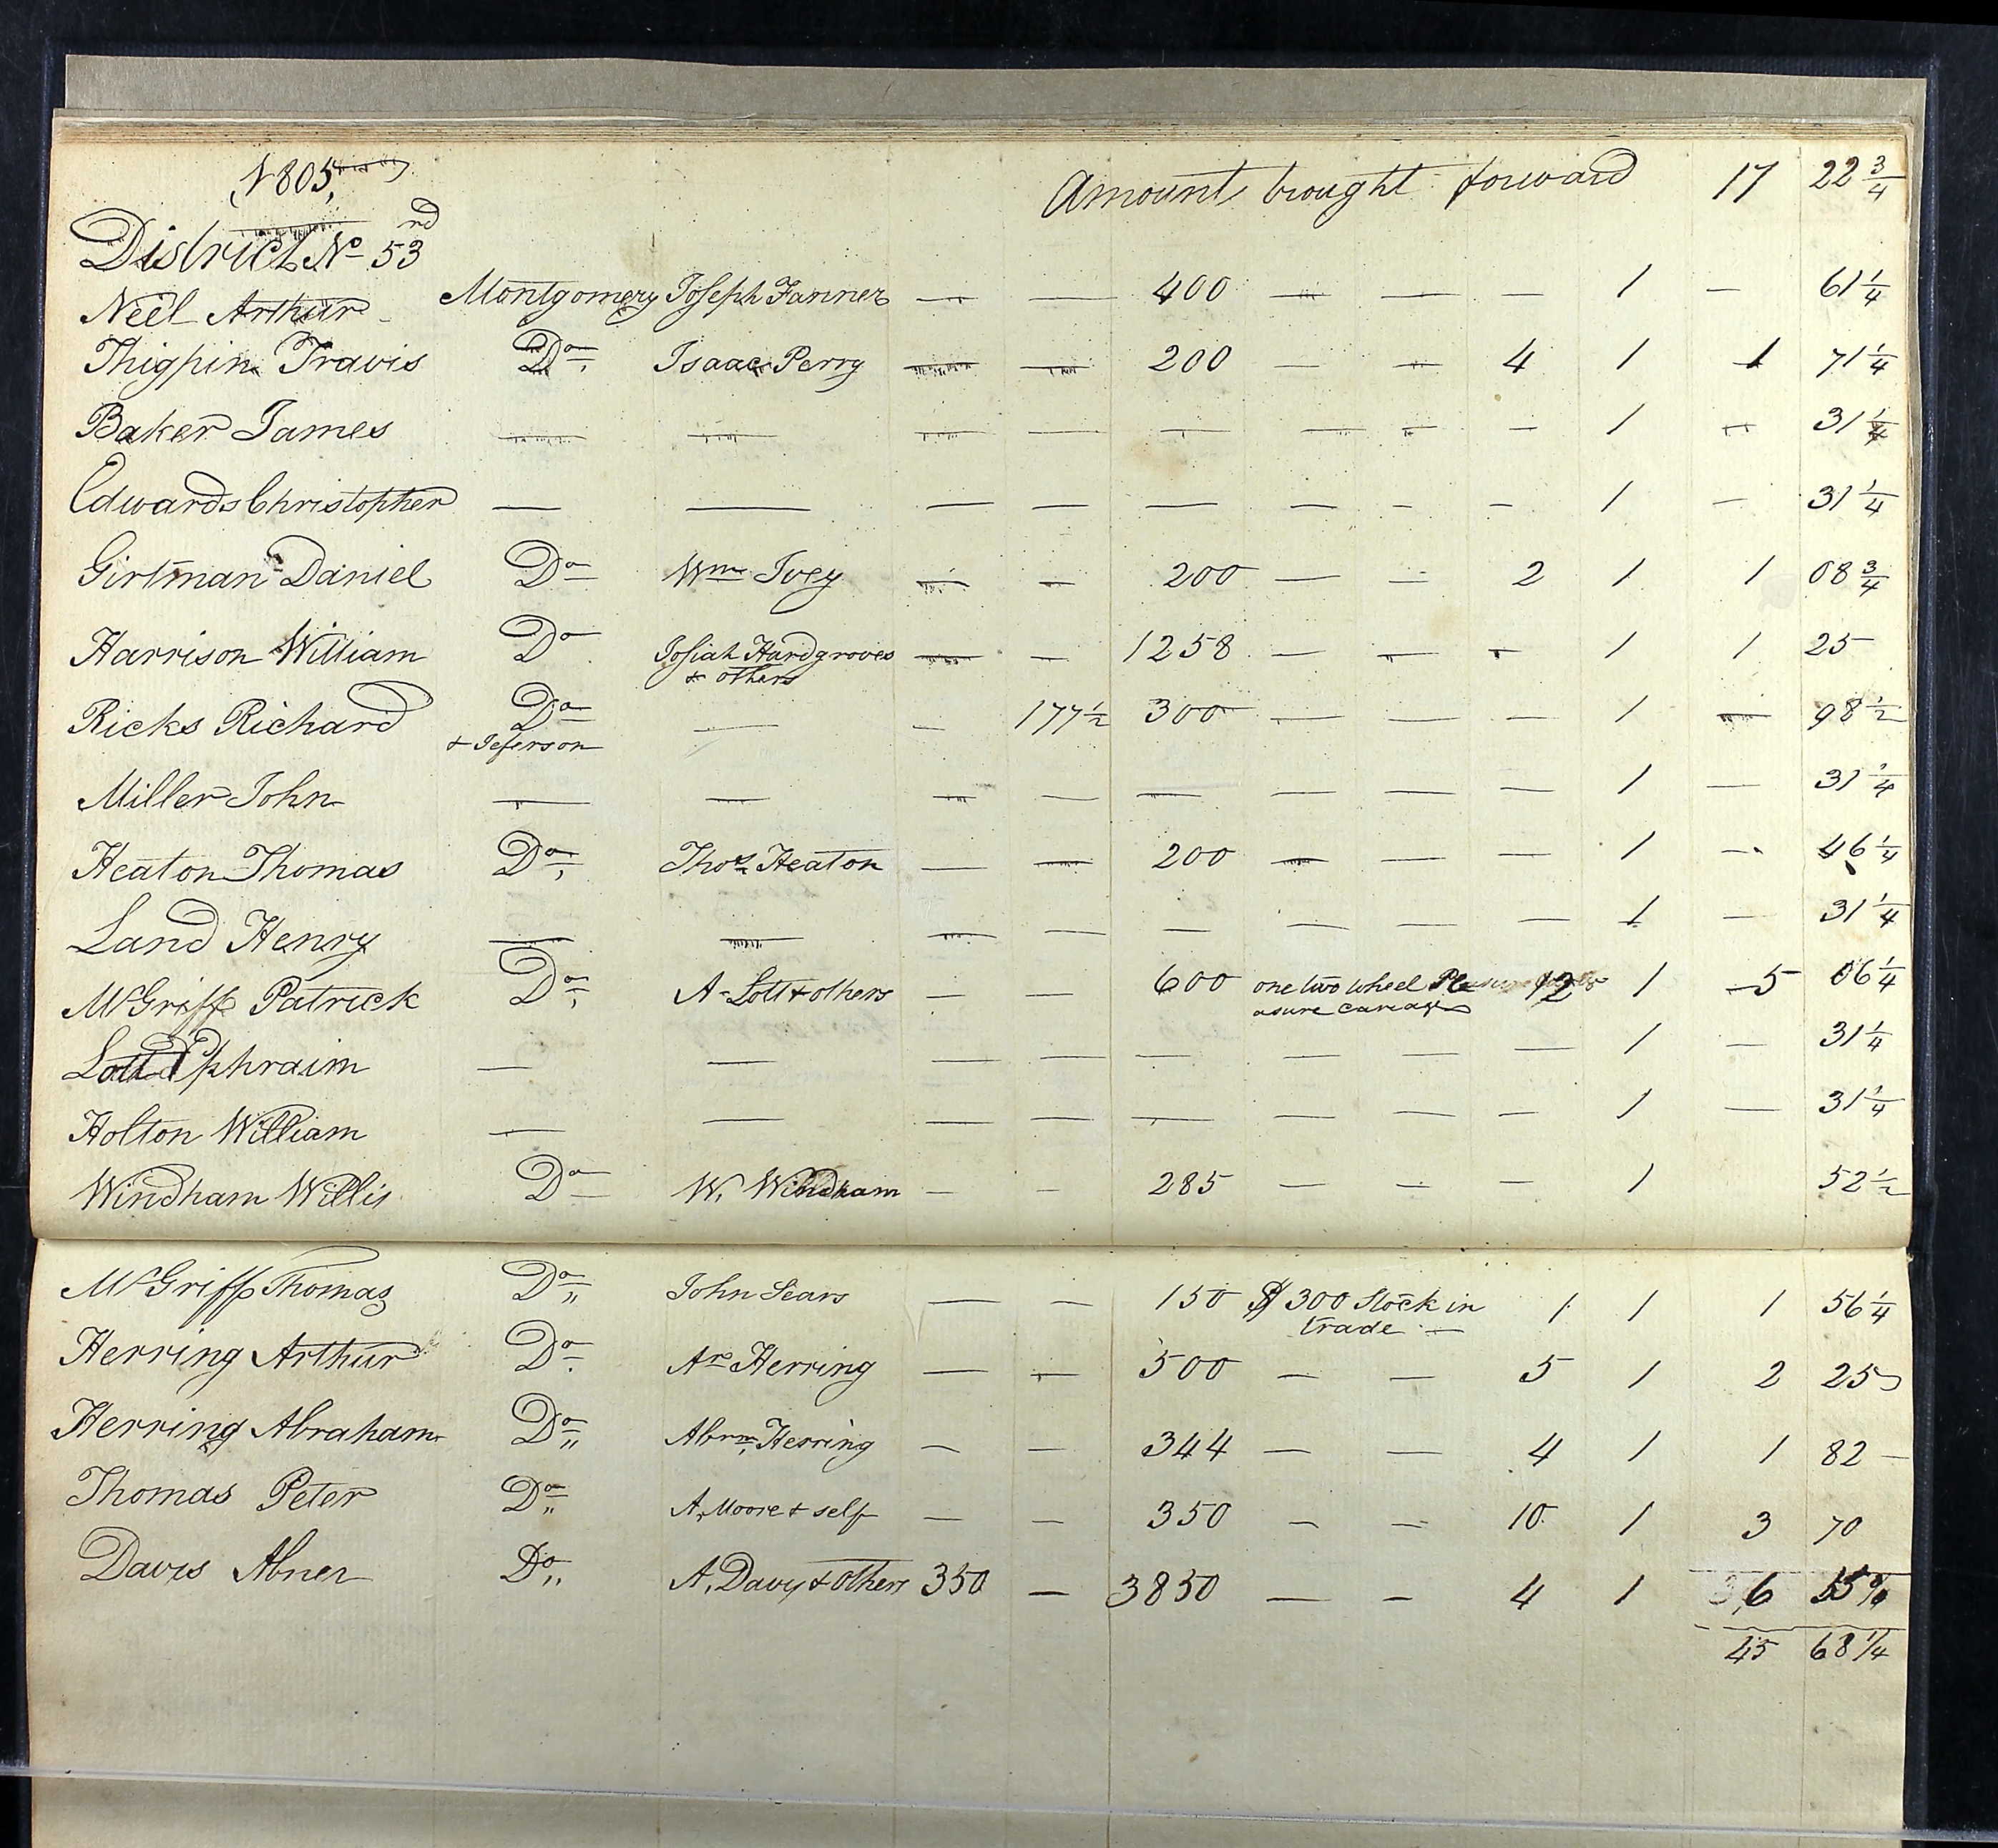 1805,
Amount brought forward 17 22 3/4
District No 53rd
Neel Arthur Montgomery Joseph Fanner — — 400 — — — 1 — 61 1/4
Thigpin Travis Do Isaac Perry — — 200 — — 4 1 1 71 1/4
Baker James — — — — — — — — 1 — 31 1/4
Edwards Christopher — — — — — — — — 1 — 31 1/4
Girtman Daniel Do Wm Ivey — — 200 — — 2 1 1 08 3/4
Harrison William Do Josiah Hardgroves — — 1258 — — — 1 1 25
& others
Ricks Richard Do — — 177 1/2 300 — — — 1 — 98 1/2
& Jeferson
Miller John — — — — — — — — 1 — 31 1/4
Heaton Thomas Do Thos Heaton — — 200 — — — 1 — 46 1/4
Land Henry — — — — — — — — 1 — 31 1/4
McGriff Patrick Do A Lott & others — — 600 one two wheel Ple 12 1 5 06 1/4
asure Cariage
Lott Ephraim — — — — — — — — 1 — 31 1/4
Holton William — — — — — — — — 1 — 31 1/4
Windham Willis Do W. Windham — — 285 — — — 1 52 1/2
McGriff Thomas Do John Sears — — 150 $300 Stock in 1 1 1 56 1/4
trade —
Herring Arthur Do Ar Herring — — 500 — — 5 1 2 25
Herring Abraham Do Abrm Herring — — 344 — — 4 1 1 82 —
Thomas Peter Do A, Moore & self — — 350 — — 10 1 3 70
Davis Abner Do A, Davy & others 350 — 3850 — — 4 1 6
45 68 1/4